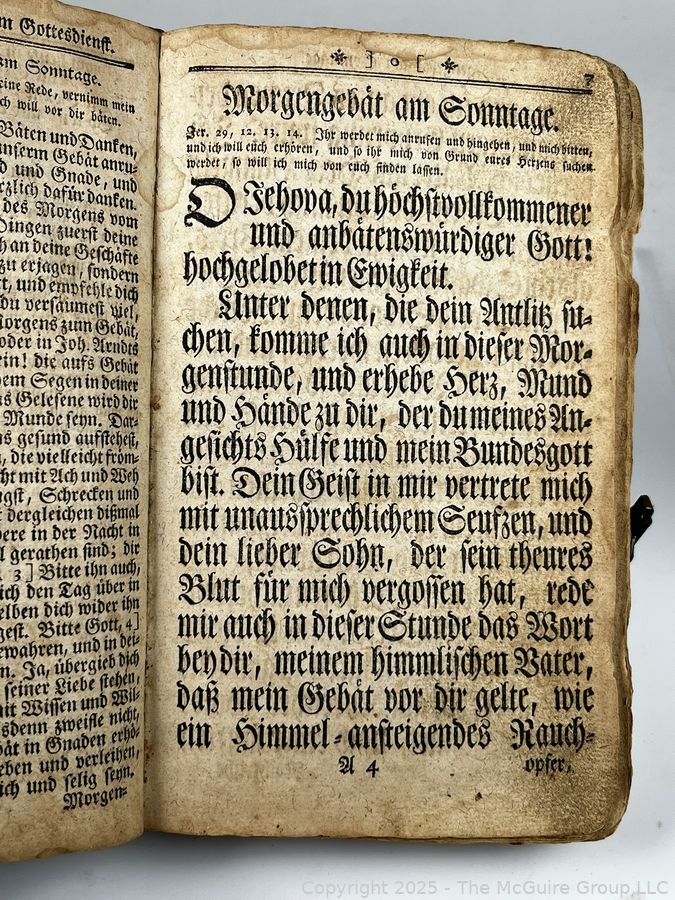 m Gottesdienst.
am Sonntage.
eine Rede, vernimm mein
ch will vor dir bäten.
Bäten und Danken,
unserm Gebät anru-
d und Gnade, und
rzlich dafür danken.
des Morgens vom
Dingen zuerst deine
h an deine Geschäfte
zu erjagen, sondern
tt, und empfehle dich
du versäumest viel,
Morgens zum Gebät,
oder in Joh. Arndts
ein! die aufs Gebät
hem Segen in deiner
as Gelesene wird dir
Munde seyn. Dar-
s gesund aufstehest,
, die vielleicht fröm-
cht mit Ach und Weh
ngst, Schrecken und
t dergleichen dißmal
dere in der Nacht in
l gerathen sind; dir
3 ] Bitte ihn auch,
ich den Tag über in
elben dich wider ihn
gest. Bitte Gott, 4]
ewahren, und in dei-
n. Ja, übergieb dich
seiner Liebe stehen,
mit Wissen und Wil-
sdenn zweifle nicht,
bät in Gnaden erhö-
eben und verleihen,
ich und selig seyn.
Morgen-
] o [ 7
Morgengebät am Sonntage.
Jer. 29, 12. 13. 14. Ihr werdet mich anrufen und hingehen, und mich bitten,
und ich will euch erhören, und so ihr mich von Grund eures Herzens suchen
werdet, so will ich mich von euch finden lassen.
O Jehova, du höchstvollkommener
und anbätenswürdiger Gott!
hochgelobet in Ewigkeit.
Unter denen, die dein Antlitz su-
chen, komme ich auch in dieser Mor-
genstunde, und erhebe Herz, Mund
und Hände zu dir, der du meines An-
gesichts Hülfe und mein Bundesgott
bist. Dein Geist in mir vertrete mich
mit unaussprechlichem Seufzen, und
dein lieber Sohn, der sein theures
Blut für mich vergossen hat, rede
mir auch in dieser Stunde das Wort
bey dir, meinem himmlischen Vater,
daß mein Gebät vor dir gelte, wie
ein Himmel-ansteigendes Rauch-
A 4 opfer,
Copyright 2025 - The McGuire Group LLC